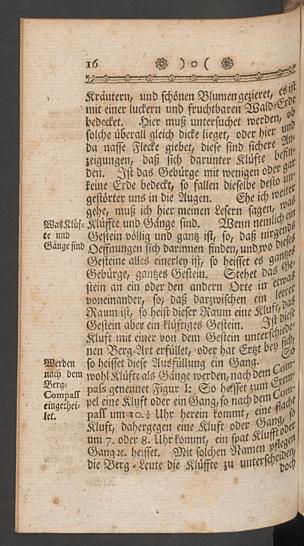 16 ) o (
Kräutern, und schönen Blumen gezieret, es ist
mit einer luckern und fruchtbaren Wald-Erde
bedecket. Hier muß untersuchet werden, ob
solche überall gleich dicke lieget, oder hier und
da nasse Flecke giebet, diese sind sichere An-
zeigungen, daß sich darunter Klüfte befin-
den. Ist das Gebürge mit wenigen oder gar
keine Erde bedeckt, so fallen dieselbe desto un-
gestörter uns in die Augen. Ehe ich weiter
gehe, muß ich hier meinen Lesern sagen, was
Was Klüf-
te und
Gänge sind
Klüffte und Gänge sind. Wenn nemlich ein
Gestein völlig und gantz ist, so, daß nirgends
Oeffnungen sich darinnen finden, und, wo dieses
Gesteine alles einerley ist, so heisset es gantzes
Gebürge, gantzes Gestein. Stehet das Ge-
stein an ein oder den andern Orte in etwas
voneinander, so, daß darzwischen ein leerer
Raum ist, so heist dieser Raum eine Kluft, das
Gestein aber ein klüftiges Gestein. Ist diese
Kluft mit einer von dem Gestein unterschiede-
nen Berg-Art erfüllet, oder hat Ertzt bey sich,
Werden
nach dem
Berg-
Compaß
eingethei-
let.
so heisset diese Ausfüllung ein Gang. So
wohl Klüfte als Gänge werden, nach dem Com-
paß geneunet Figur 1. So heisset zum Exem-
pel eine Kluft oder ein Gang, so nach dem Com-
paß um 10. Uhr herein kommt, eine flache
Kluft, dahergegen eine Kluft oder Gang, so
um 7. oder 8. Uhr kommt, ein spat Klufft oder
Gang ec. heisset. Mit solchen Namen pflegen
die Berg-Leute die Klüffte zu unterscheiden,
doch